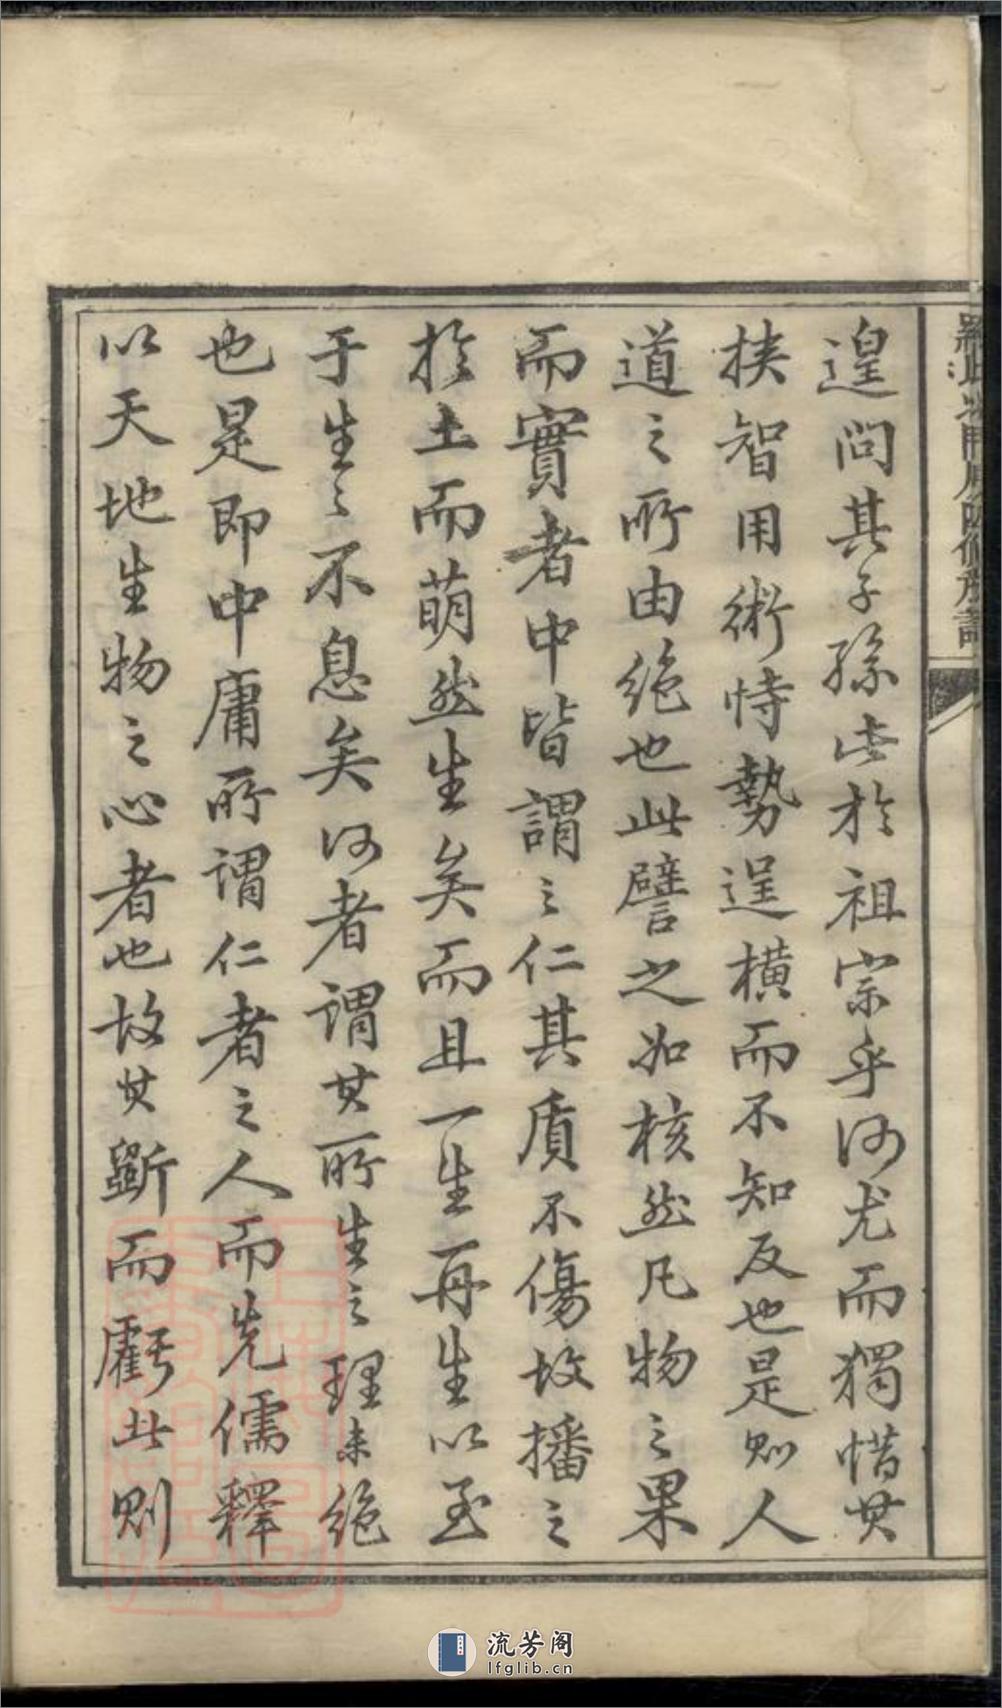 遑問其子孫此於祖宗乎何尤而獨惜其
挟智用術恃勢逞橫而不知反也是則人
道之所由絶也此譬之如核然凡物之果
而實者中皆謂之仁其質不傷故播之
於土而萌然生矣而且一生再生以至
于生々不息矣何者謂其所生之理未絶
也是即中庸所謂仁者之人而先儒釋
以天地生物之心者也故其斷而虧此則
流芳阁
lfglib.cn